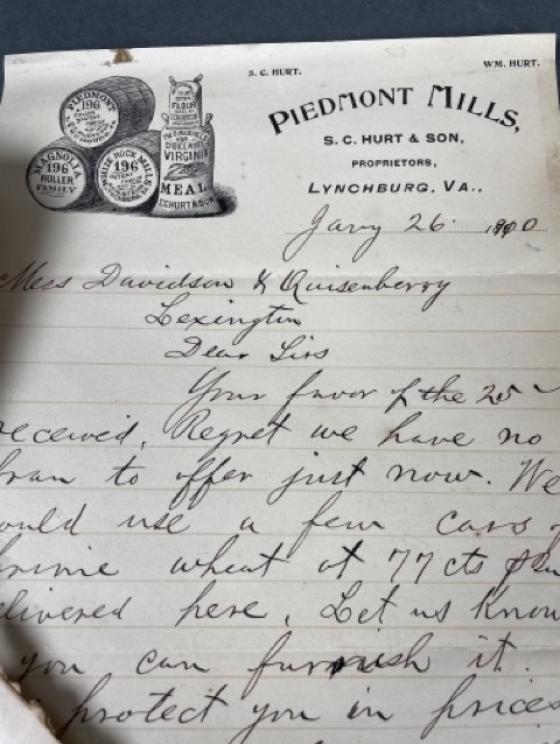 S. C. HURT.
WM. HURT.
PIEDMONT MILLS,
S. C. HURT & SON,
PROPRIETORS,
LYNCHBURG, VA.,
PIEDMONT
196
MAGNOLIA
196
ROLLER
FAMILY
WHITE ROCK MILLS
196
FLOUR
VIRGINIA
MEAL
S.C.HURT & SON
Jany 26 1900
Mess Davidson & Quisenberry
Lexington
Dear Sirs
Your favor of the 25
received. Regret we have no
bran to offer just now. We
ould use a few cars
prime wheat at 77 cts
elivered here. Let us know
you can furnish it.
protect you in prices